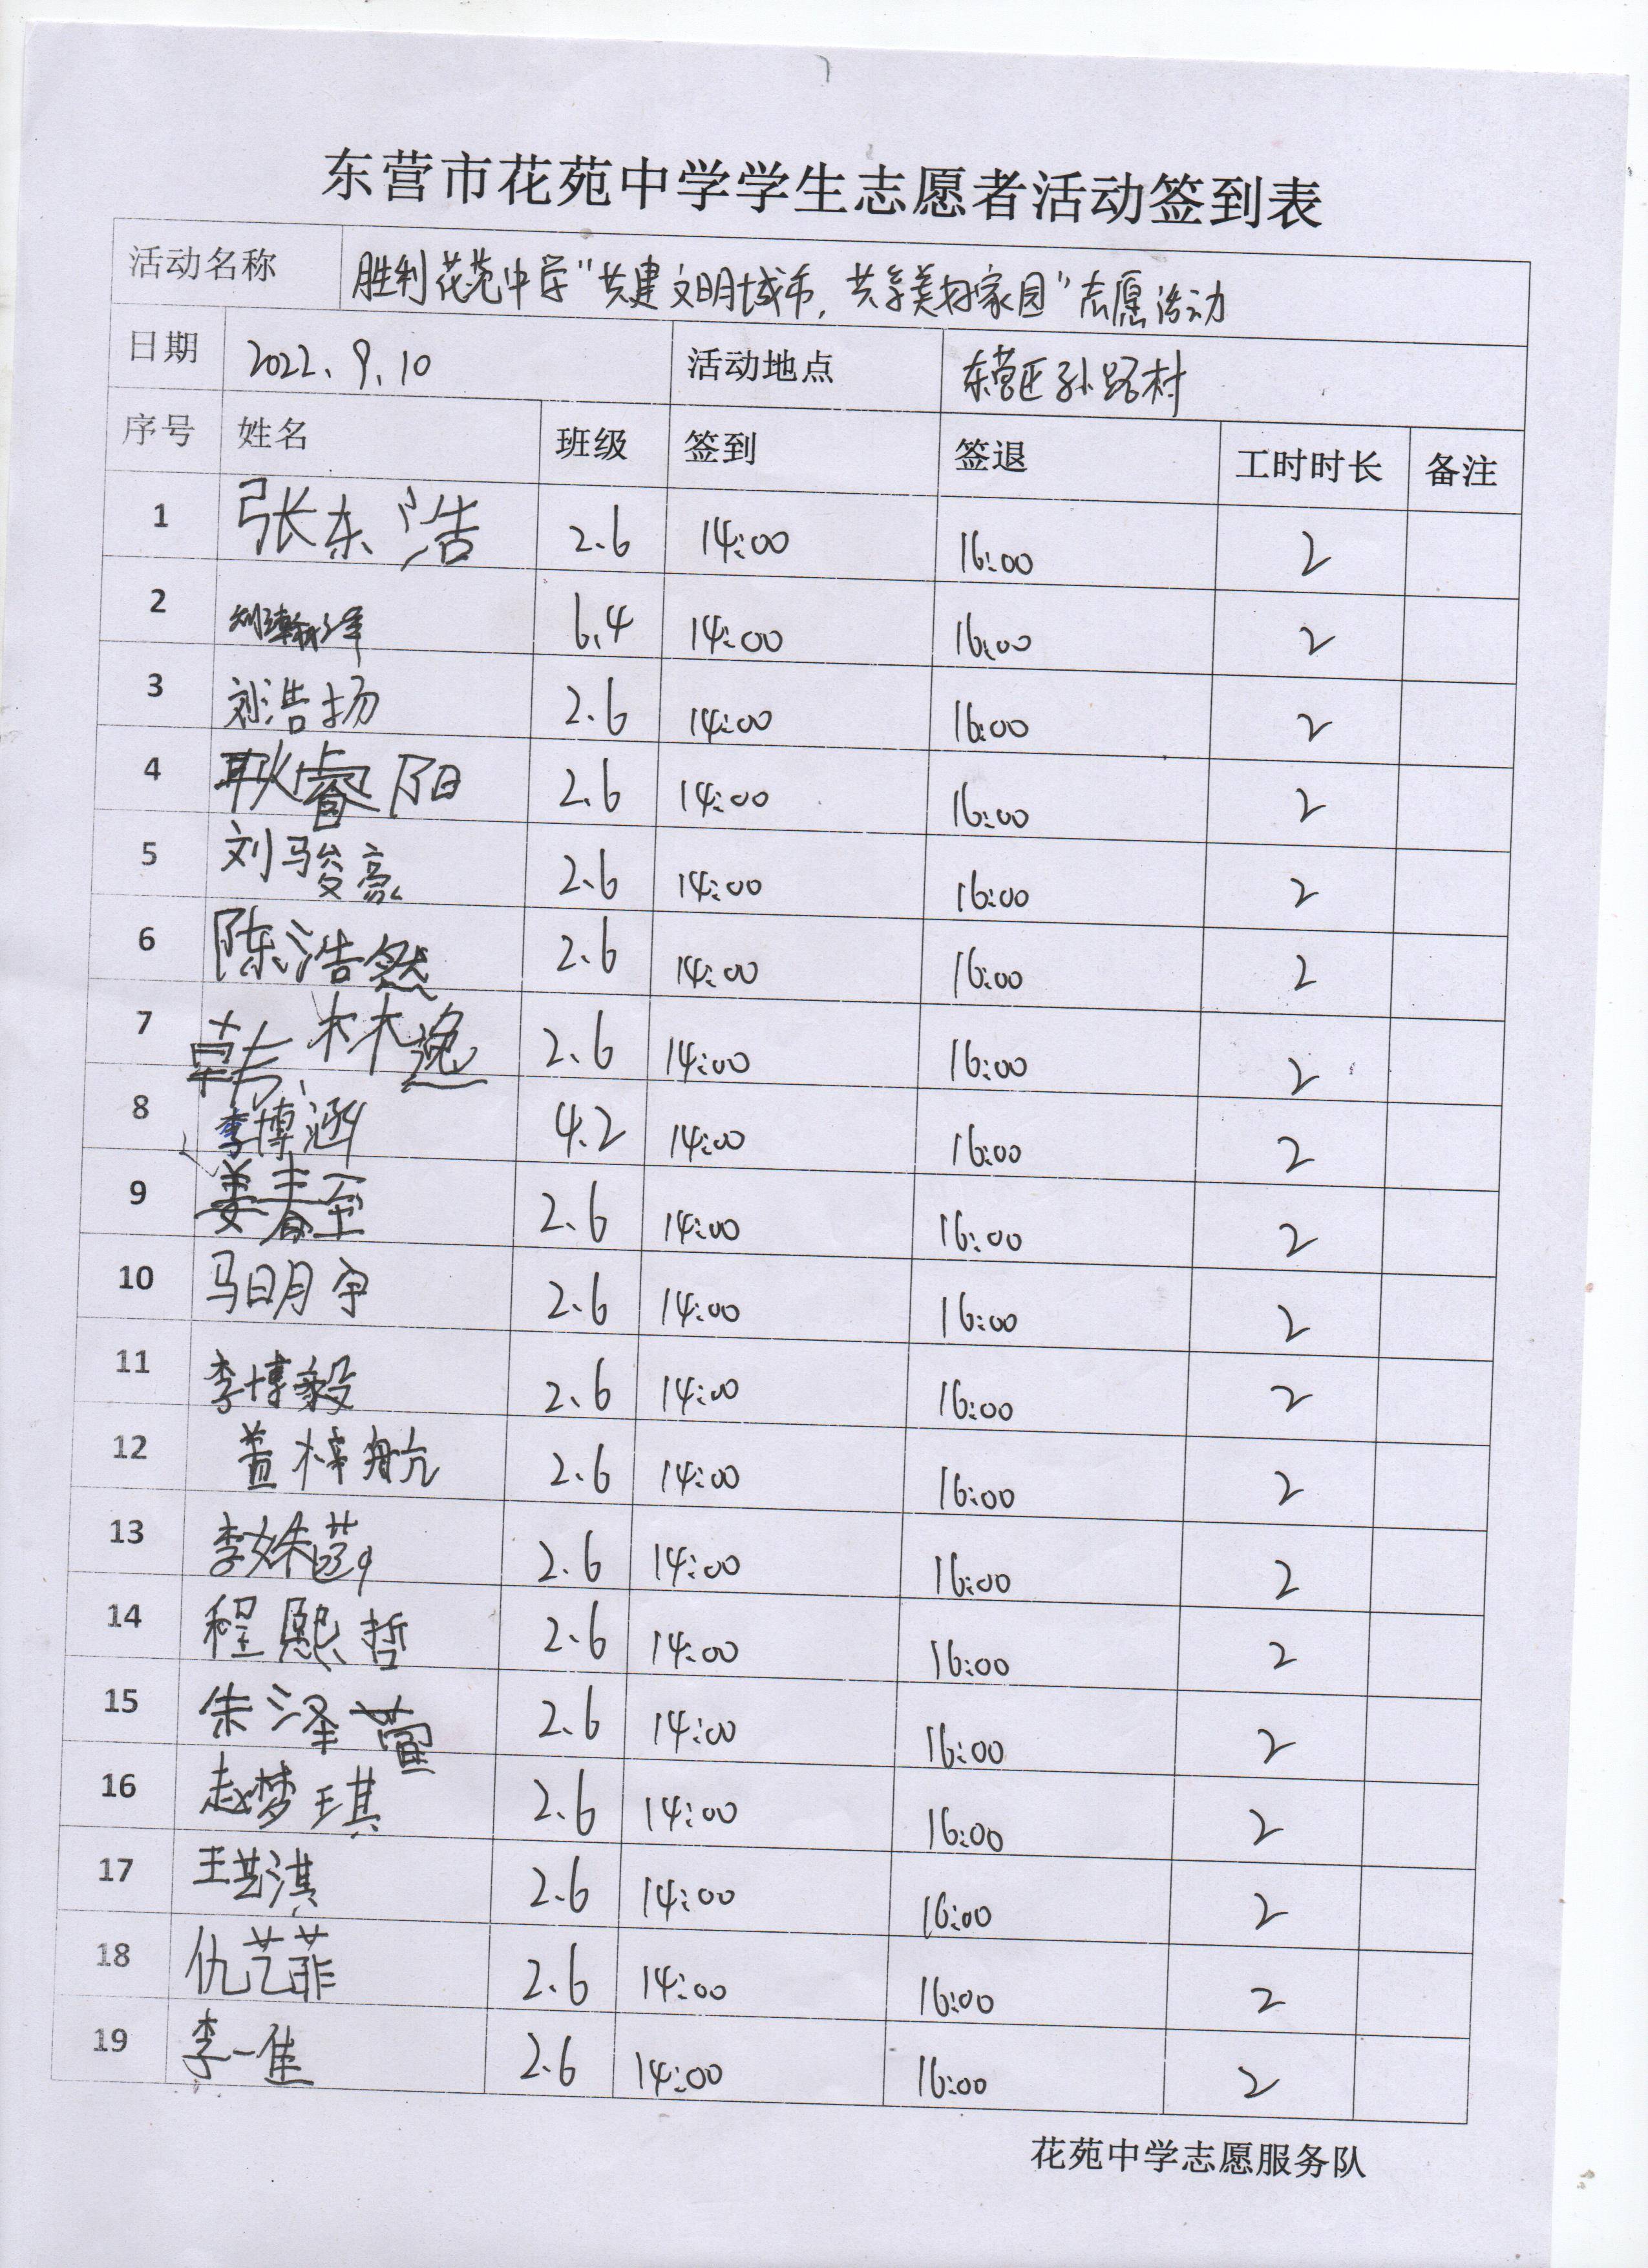 东营市花苑中学学生志愿者活动签到表
活动名称 胜利花苑中学"共建文明城市,共享美好家园"志愿活动
日期 2022、9、10 活动地点 东营区孙路村
序号 姓名 班级 签到 签退 工时时长 备注
1 张东浩 2.6 14:00 16:00 2
2 刘瀚泽 6.4 14:00 16:00 2
3 刘浩扬 2.6 14:00 16:00 2
4 耿睿阳 2.6 14:00 16:00 2
5 刘骏豪 2.6 14:00 16:00 2
6 陈浩然 2.6 14:00 16:00 2
7 韩林逸 2.6 14:00 16:00 2
8 李博涵 4.2 14:00 16:00 2
9 姜春至 2.6 14:00 16:00 2
10 马明宇 2.6 14:00 16:00 2
11 李博毅 2.6 14:00 16:00 2
12 盖梓航 2.6 14:00 16:00 2
13 李姝菡 2.6 14:00 16:00 2
14 程熙哲 2.6 14:00 16:00 2
15 朱泽萱 2.6 14:00 16:00 2
16 赵梦琪 2.6 14:00 16:00 2
17 王艺淇 2.6 14:00 16:00 2
18 仇艺菲 2.6 14:00 16:00 2
19 李一隹 2.6 14:00 16:00 2
花苑中学志愿服务队